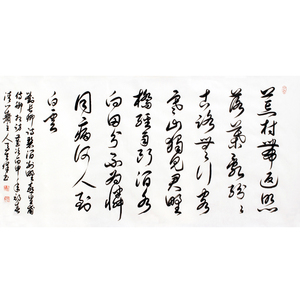 荒村帶返照
落葉亂紛紛
古路無行客
寒山獨見君野
橋經雨斷澗水
向田分不為憐
同病何人到
白雲
劉長卿詩碧澗別墅喜皇甫
侍御相訪